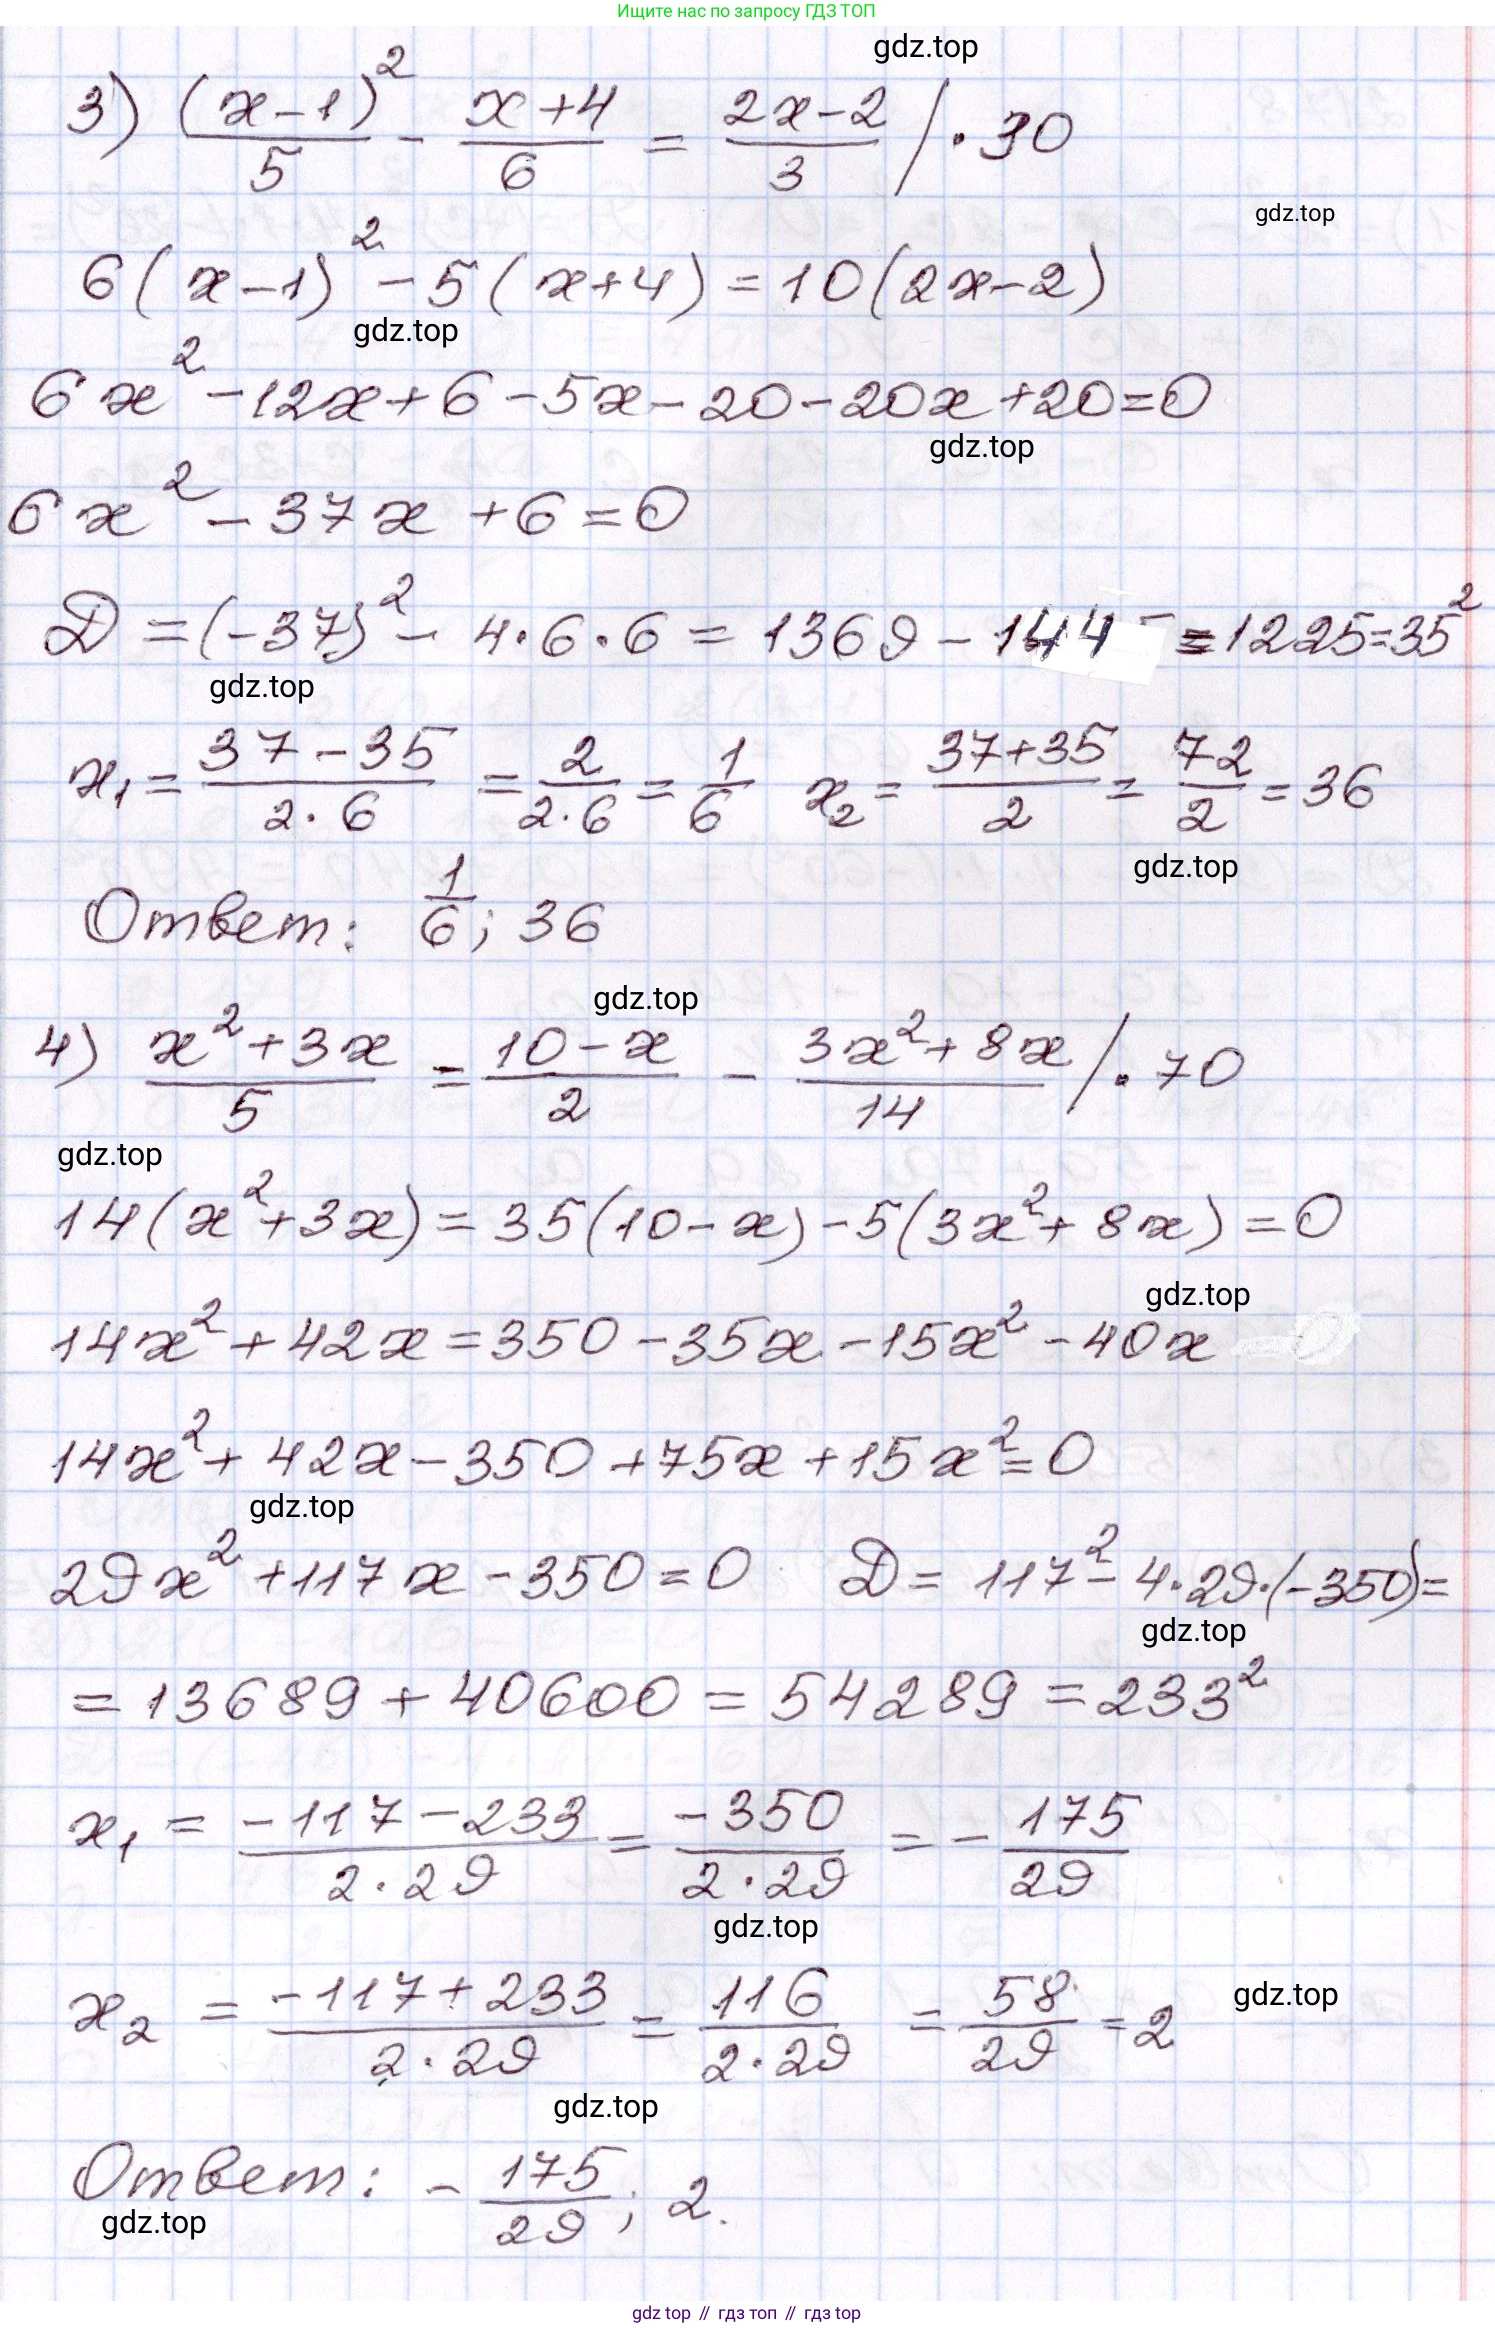 Ищите нас по запросу ГДЗ ТОП
gdz.top
3) (x-1)²/5 - x+4/6 = 2x-2/3 / · 30
gdz.top
6(x-1)² - 5(x+4) = 10(2x-2)
gdz.top
6x² - 12x + 6 - 5x - 20 - 20x + 20 = 0
gdz.top
6x² - 37x + 6 = 0
D = (-37)² - 4·6·6 = 1369 - 144 = 1225 = 35²
gdz.top
x₁ = 37-35/2·6 = 2/2·6 = 1/6 x₂ = 37+35/2 = 72/2 = 36
gdz.top
Ответ: 1/6; 36
gdz.top
4) x²+3x/5 = 10-x/2 - 3x²+8x/14 / · 70
gdz.top
14(x²+3x) = 35(10-x) - 5(3x²+8x) = 0
gdz.top
14x² + 42x = 350 - 35x - 15x² - 40x
14x² + 42x - 350 + 75x + 15x² = 0
gdz.top
29x² + 117x - 350 = 0 D = 117² - 4·29·(-350) =
gdz.top
= 13689 + 40600 = 54289 = 233²
x₁ = -117-233/2·29 = -350/2·29 = - 175/29
gdz.top
x₂ = -117+233/2·29 = 116/2·29 = 58/29 = 2
gdz.top
gdz.top
Ответ: - 175/29; 2.
gdz.top
gdz top // гдз топ // гдз top